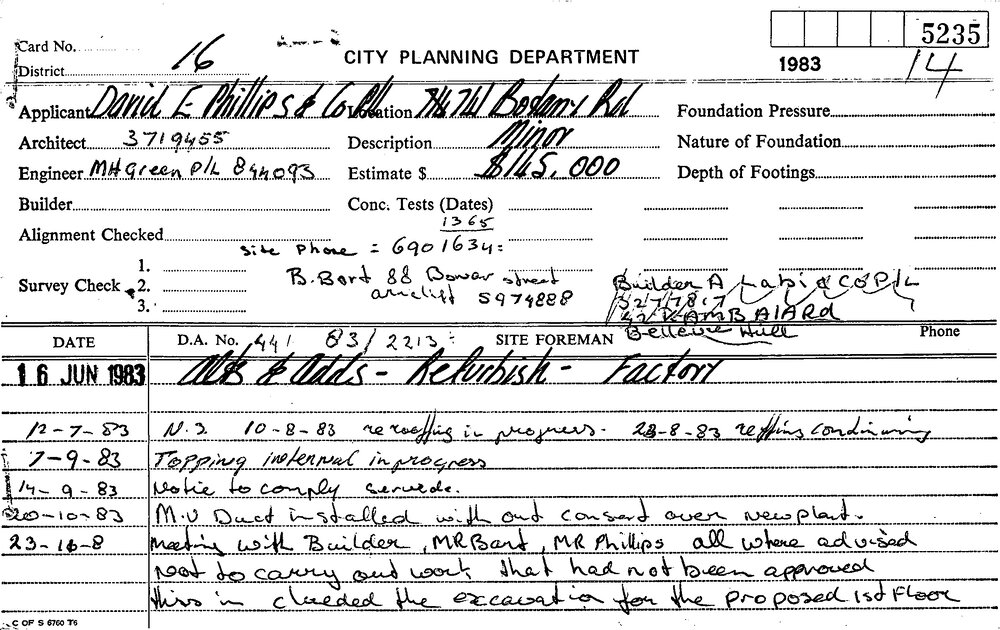 5235
Card No. 16
CITY PLANNING DEPARTMENT
1983 14
District
Applicant David E Phillips & Co P/L Location 741 Botany Rd Foundation Pressure
Architect 3719455 Description Minor Nature of Foundation
Engineer MHGreen P/L 844093 Estimate $ $145,000 Depth of Footings
Builder Conc. Tests (Dates)
1365
Alignment Checked
Site Phone = 6901634=
Survey Check 1.
2.
3.
B. Bart 88 Bowar street
arncliff 5974888
Builder A Labio CO P/L
3277817
KAMBALARd
Bellevue Hull
DATE D.A. No. 441 83/2213 SITE FOREMAN Phone
16 JUN 1983 Alts & Adds - Refurbish - Factory
12-7-83 N.S. 10-8-83 reroofing in progress. 23-8-83
7-9-83 Topping internal in progress
14-9-83 Notice to comply servede.
20-10-83 M.V Duct installed with out consent over new plant.
23-10-8 Meeting with Builder, MR Bart, MR Phillips all where advised
not to carry out work that had not been approved
this in clueded the excavation for the proposed 1st Floor
C OF S 6760 T6